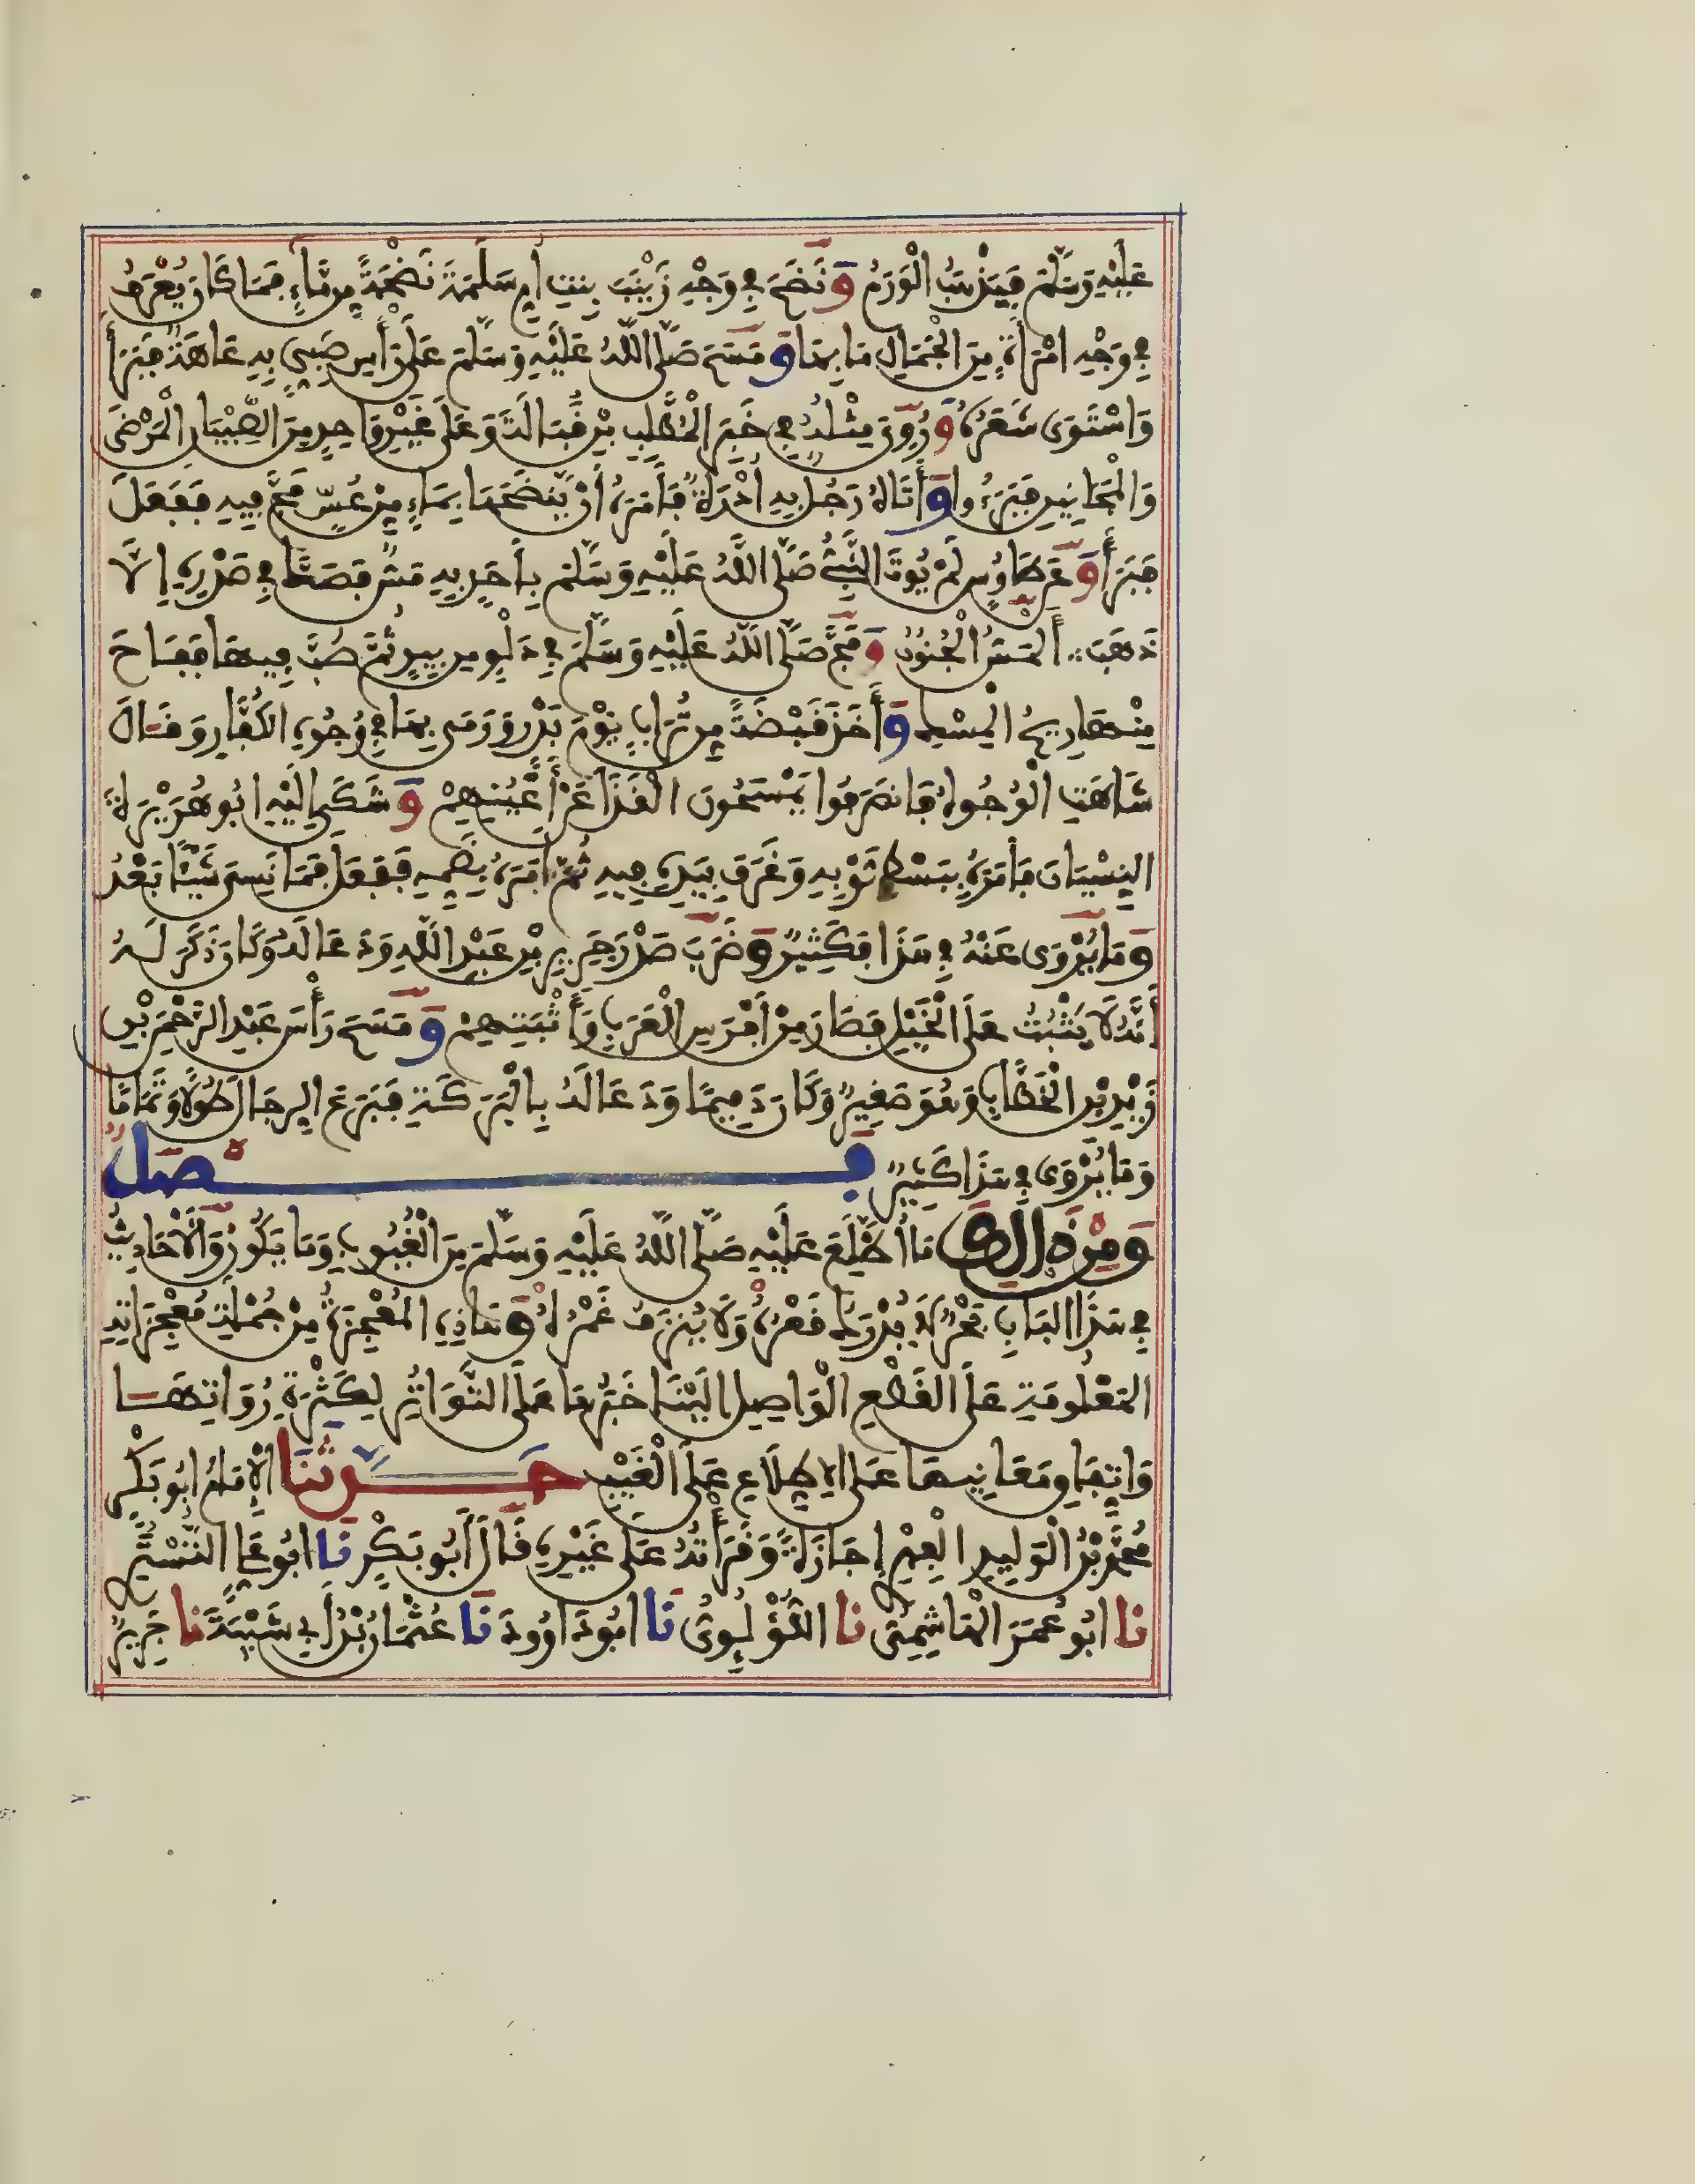 عَلَيْهِ وَسَلَّمَ فَيَذْهَبُ الْوَرَمُ وَنَضَحَ فِي وَجْهِ زَيْنَبَ بِنْتِ أُمِّ سَلَمَةَ نَضْحَةً مِن مَّاءٍ فَمَا كَانَ يُعْرَفُ
فِي وَجْهِ امْرَأَةٍ مِنَ الْجَمَالِ مَا بِهَا وَمَسَحَ صَلَّى اللَّهُ عَلَيْهِ وَسَلَّمَ عَلَى رَأْسِ صَبِيٍّ بِهِ عَاهَةٌ فَبَرَأَ
وَاسْتَوَى شَعَرُهُ وَرُوِيَ مِثْلُهُ فِي خَبَرِ الْمُهَلَّبِ بْنِ قَبَالَةَ وَعَلَى غَيْرِ وَاحِدٍ مِنَ الصِّبْيَانِ الْمَرْضَى
وَالْمَجَانِينِ فَبَرَءُوا وَأَتَاهُ رَجُلٌ بِهِ أُدْرَةٌ فَأَمَرَهُ أَنْ يَّنْضَحَهَا بِمَاءٍ مِنْ عُسٍّ مَجَّ فِيهِ فَفَعَلَ
فَبَرَأَ وَعَن طَاوُسٍ لَمْ يُوتَ النَّبِيُّ صَلَّى اللَّهُ عَلَيْهِ وَسَلَّمَ بِأَحَدٍ بِهِ مَسٌّ فَصَكَّ فِي صَدْرِهِ إِلَّا
ذَهَبَ ∴ أَلْمَسُّ الْجُنُونُ وَمَجَّ صَلَّى اللَّهُ عَلَيْهِ وَسَلَّمَ فِي دَلْوٍ مِن بِيرٍ ثُمَّ صُبَّ فِيهَا فَفَاحَ
مِنْهَا رِيحُ الْمِسْكِ وَأَخَذَ قَبْضَةً مِن تُرَابٍ يَوْمَ بَدْرٍ وَرَمَى بِهَا فِي وُجُوهِ الْكُفَّارِ وَقَالَ
شَاهَتِ الْوُجُوهُ فَانصَرَفُوا يَمْسَحُونَ الْقَذَا عَنْ أَعْيُنِهِمْ وَشَكَى إِلَيْهِ أَبُو هُرَيْرَةَ
النِّسْيَانَ فَأَمَرَهُ بِبَسْطِ ثَوْبِهِ وَغَرَفَ بِيَدِهِ فِيهِ ثُمَّ أَمَرَهُ بِضَمِّهِ فَفَعَلَ فَمَا نَسِيَ شَيْئًا بَعْدُ
وَمَا يُرْوَى عَنْهُ فِي هَذَا فَكَثِيرٌ وَضَرَبَ صَدْرَ جَرِيرِ بْنِ عَبْدِ اللَّهِ وَدَعَا لَهُ وَكَانَ ذَكَرَ لَهُ
أَنَّهُ لَا يَثْبُتُ عَلَى الْخَيْلِ فَصَارَ مِنْ أَفْرَسِ الْعَرَبِ وَأَثْبَتِهِمْ وَمَسَحَ رَأْسَ عَبْدِ الرَّحْمَنِ بْنِ
زَيْدِ بْنِ الْخَطَّابِ وَهُوَ صَغِيرٌ وَكَانَ دَمِيمًا وَدَعَا لَهُ بِالْبَرَكَةِ فَبَرَعَ الرِّجَالَ طُولًا وَتَمَامًا
وَمَا يُرْوَى فِي هَذَا كَثِيرٌ فَصْلٌ
وَمِنْ ذَالِكَ مَا أُطْلِعَ عَلَيْهِ صَلَّى اللَّهُ عَلَيْهِ وَسَلَّمَ مِنَ الْغُيُوبِ وَمَا يَكُونُ وَالْأَحَادِيثُ
فِي هَذَا الْبَابِ بَحْرٌ لَا يُدْرَكُ قَعْرُهُ وَلَا يُنْزَفُ غَمْرُهُ وَهَذِهِ الْمُعْجِزَةُ مِنْ جُمْلَةِ مُعْجِزَاتِهِ
الْمَعْلُومَةِ عَلَى الْقَطْعِ الْوَاصِلِ إِلَيْنَا خَبَرُهَا عَلَى التَّوَاتُرِ لِكَثْرَةِ رُوَاتِهَا
وَاتِّفَاقِ مَعَانِيهَا عَلَى الِاطِّلَاعِ عَلَى الْغَيْبِ حَدَّثَنَا الْإِمَامُ أَبُو بَكْرٍ
مُحَمَّدُ بْنُ الْوَلِيدِ الْفِهْرِيُّ إِجَازَةً وَقَرَأْتُهُ عَلَى غَيْرِهِ قَالَ أَبُو بَكْرٍ نَا أَبُو عَلِيٍّ التُّسْتَرِيُّ
نَا أَبُو عُمَرَ الْهَاشِمِيُّ نَا اللُّؤْلُوِيُّ نَا أَبُو دَاوُودَ نَا عُثْمَانُ بْنُ أَبِي شَيْبَةَ نَا جَرِيرٌ